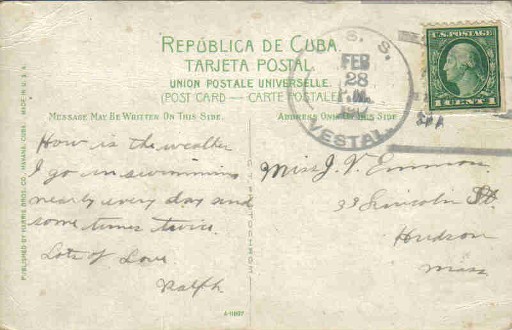 REPÚBLICA DE CUBA.
TARJETA POSTAL.
UNION POSTALE UNIVERSELLE.
(POST CARD — CARTE POSTALE)
U. S. S.
FEB
28
P.M.
VESTAL.
U.S. POSTAGE
1 CENT 1
MESSAGE MAY BE WRITTEN ON THIS SIDE.
ADDRESS ONLY ON THIS SIDE
How is the weather
I go in swimming
nearly every day and
some times twice.
Lots of Love
Ralph
Miss J. V. Emmons
33 Lincoln St.
Hudson
Mass
PUBLISHED BY HARRIS BROS. CO., HAVANA, CUBA. MADE IN U. S. A.